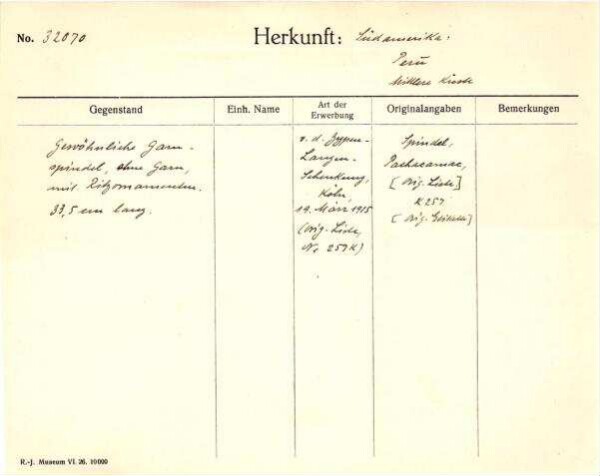 No. 32070
Herkunft: Südamerika.
Peru
Mittlere Küste
Gegenstand
Einh. Name
Art der Erwerbung
Originalangaben
Bemerkungen
Gewöhnliche Garn-
spindel, ohne Garn,
mit Ritzornamenten.
33,5 cm lang.
v. d. Zypen-
Langen-
Schenkung,
Köln,
19. März 1915
(orig. Liste,
No 257 K)
Spindel,
Pachacamac,
[Orig. Liste]
K 257
[Orig.
R.-J. Museum VI. 26. 10000